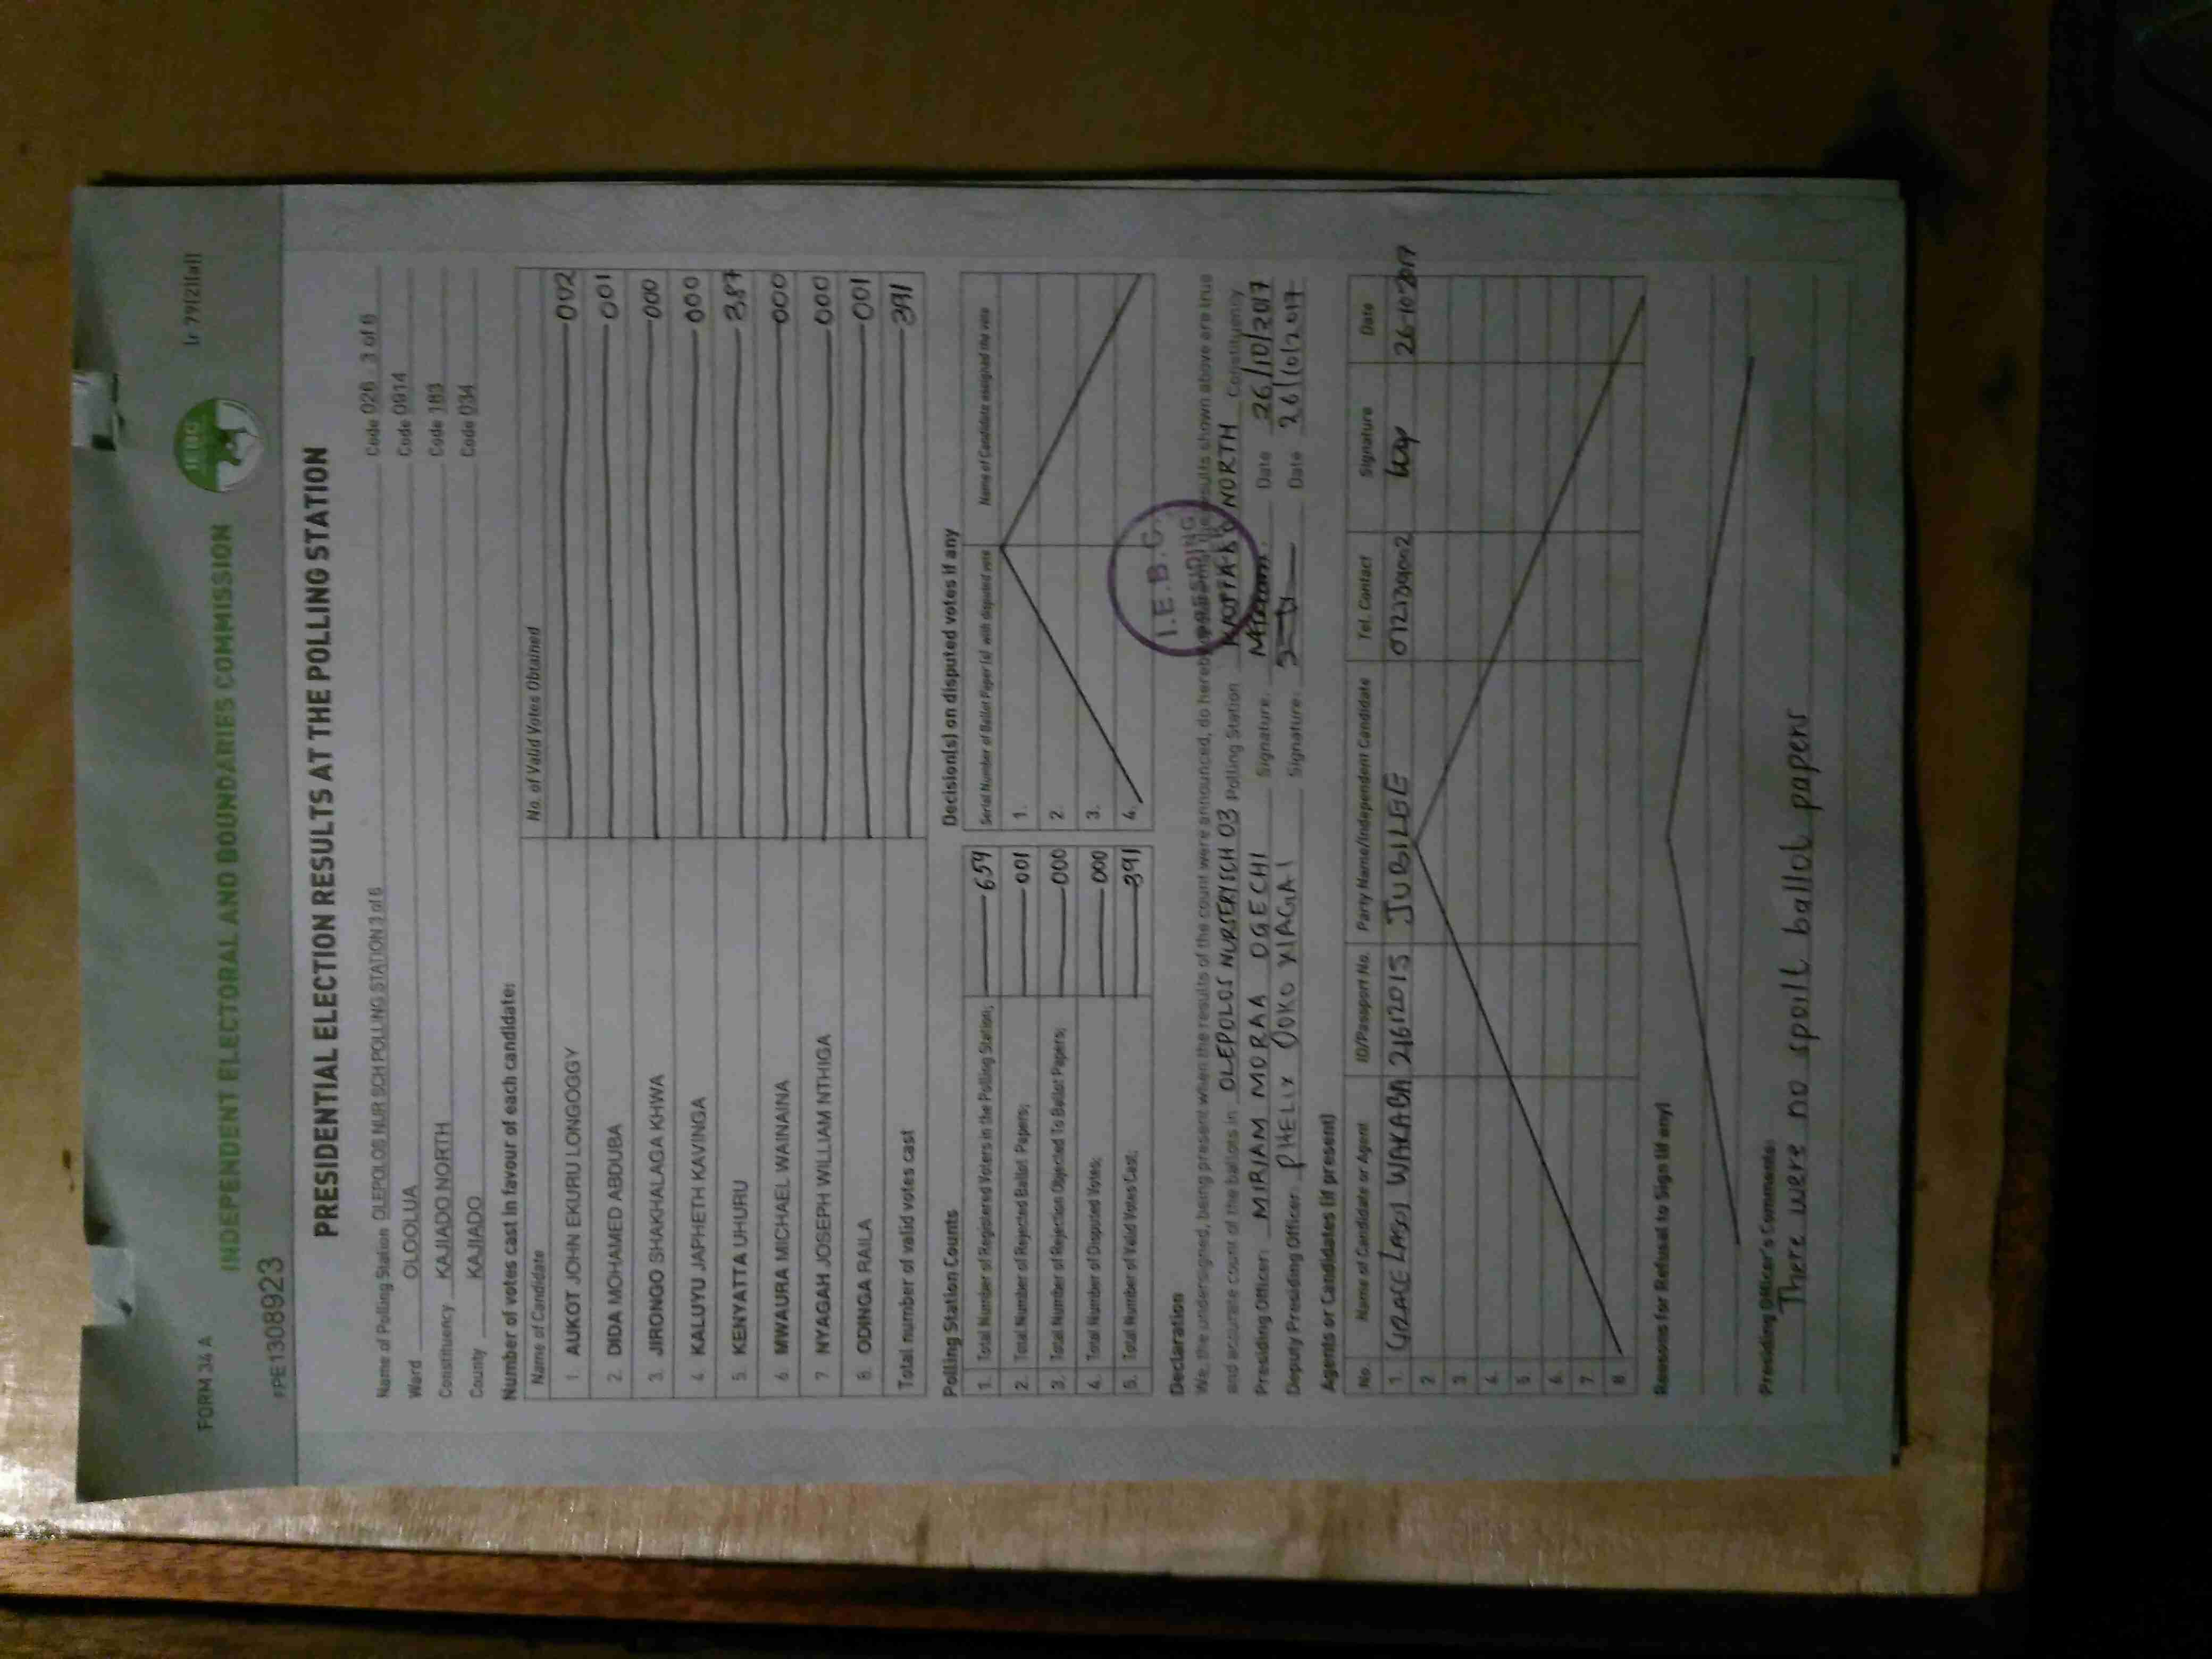 FORM 34 A
(r 79(2)(a))
INDEPENDENT ELECTORAL AND BOUNDARIES COMMISSION
IEBC
FPE1308923
PRESIDENTIAL ELECTION RESULTS AT THE POLLING STATION
Name of Polling Station OLEPOLOS NUR SCH POLLING STATION 3 of 6 Code 026 . 3 of 6
Ward OLOOLUA Code 0914
Constituency KAJIADO NORTH Code 183
County KAJIADO Code 034
Number of votes cast in favour of each candidate:
Name of Candidate No. of Valid Votes Obtained
1. AUKOT JOHN EKURU LONGOGGY 002
2. DIDA MOHAMED ABDUBA 001
3. JIRONGO SHAKHALAGA KHWA 000
4. KALUYU JAPHETH KAVINGA 000
5. KENYATTA UHURU 387
6. MWAURA MICHAEL WAINAINA 000
7. NYAGAH JOSEPH WILLIAM NTHIGA 000
8. ODINGA RAILA 001
Total number of valid votes cast 391
Polling Station Counts
1. Total Number of Registered Voters in the Polling Station; 659
2. Total Number of Rejected Ballot Papers; 001
3. Total Number of Rejection Objected To Ballot Papers; 000
4. Total Number of Disputed Votes; 000
5. Total Number of Valid Votes Cast; 391
Decision(s) on disputed votes if any
Serial Number of Ballot Paper (s) with disputed vote Name of Candidate assigned the vote
1.
2.
3.
4.
I.E.B.C.
PRESIDING
Declaration
We, the undersigned, being present when the results of the count were announced, do hereby results shown above are true
and accurate count of the ballots in OLEPOLOS NURSERY SCH 03 Polling Station NORTH Constituency
Presiding Officer: MIRIAM MORAA OGECHI Signature: Date 26/10/2017
Deputy Presiding Officer PHELIX OOKO Signature: Date 26/10/2017
Agents or Candidates (if present)
No. Name of Candidate or Agent ID/Passport No. Party Name/Independent Candidate Tel. Contact Signature Date
1. GRACE WAKABA 21612015 JUBILEE 0722739002 26-10-2017
2.
3.
4.
5.
6.
7.
8.
Reasons for Refusal to Sign (if any)
Presiding Officer's Comments:
There were no spoilt ballot papers